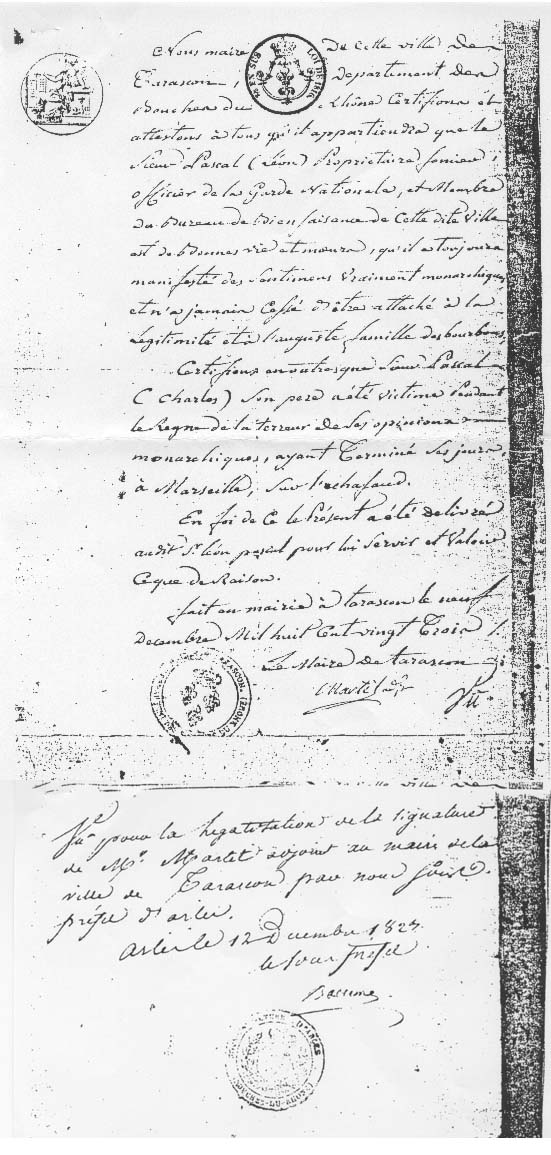 Nous maire de Cette ville de
Tarascon, departement des
Bouches du Rhône Certifions et
attestons à tous qu'il appartiendra que le
Sieur Pascal (Léon) Propriétaire foncier,
officier de la Garde Nationale, et Membre
du bureau de bienfaisance de Cette dite Ville
est de bonnes vie et mœurs, qu'il a toujours
manifesté des Sentimens vraiment monarchiques
et n'a jamais Cessé d'être attaché à la
légitimité et à l'auguste famille des bourbons,
Certifions en outre que Sieur Pascal
(Charles) Son pere a été victime pendant
le Regne de la terreur de Ses opinions
monarchiques, ayant Terminé Ses jours,
à Marseille, Sur l'echafaud.
En foi de Ce le Présent a été délivré
audit Sr. léon pascal pour lui Servir et Valoir
Ce que de Raison.
fait en mairie à tarascon le neuf
Decembre Mil huit Cent vingt Trois /.
Le Maire de tarascon
Vu
Vu pour la legalisation de la signature
de Mr. Martet adjoint au maire de la
ville de Tarascon par nous Sous
préfet d'arles.
Arles le 12 Decembre 1823
le Sous préfet